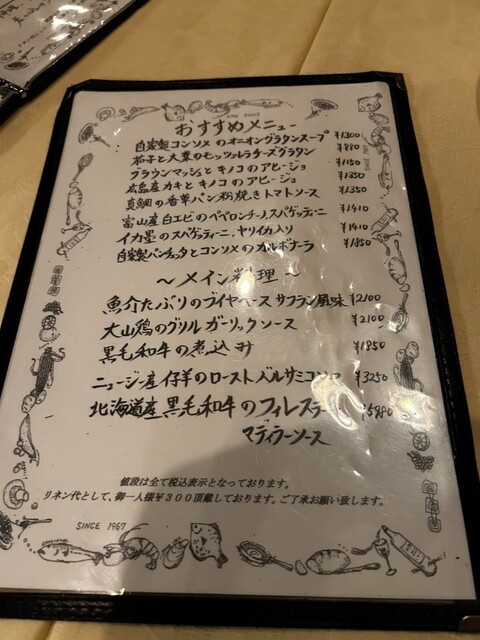 おすすめメニュー
自家製コンソメのオニオングラタンスープ ¥1300
茄子と大葉のモッツァレラチーズグラタン ¥880
ブラウンマッシュとキノコのアヒージョ ¥1150
広島産カキとキノコのアヒージョ ¥1350
真鯛の香草パン粉焼きトマトソース ¥1350
富山産白エビのペペロンチーノ,スパゲッティーニ ¥1410
イカ墨のスパゲッティーニ,ヤリイカ入り ¥1410
自家製パンチェッタとコンソメのカルボナーラ ¥1350
〜メイン料理〜
魚介たぷりのブイヤベースサフラン風味 ¥2100
大山鶏のグリルガーリックソース ¥2100
黒毛和牛の煮込み ¥1850
ニュージー産仔羊のローストバルサミコソース ¥3250
北海道産黒毛和牛のフィレステーキ
マディラーソース
値段は全て税込表示となっております。
リネン代として、御一人様¥300頂戴しております。ご了承お願い致します。
SINCE 1967